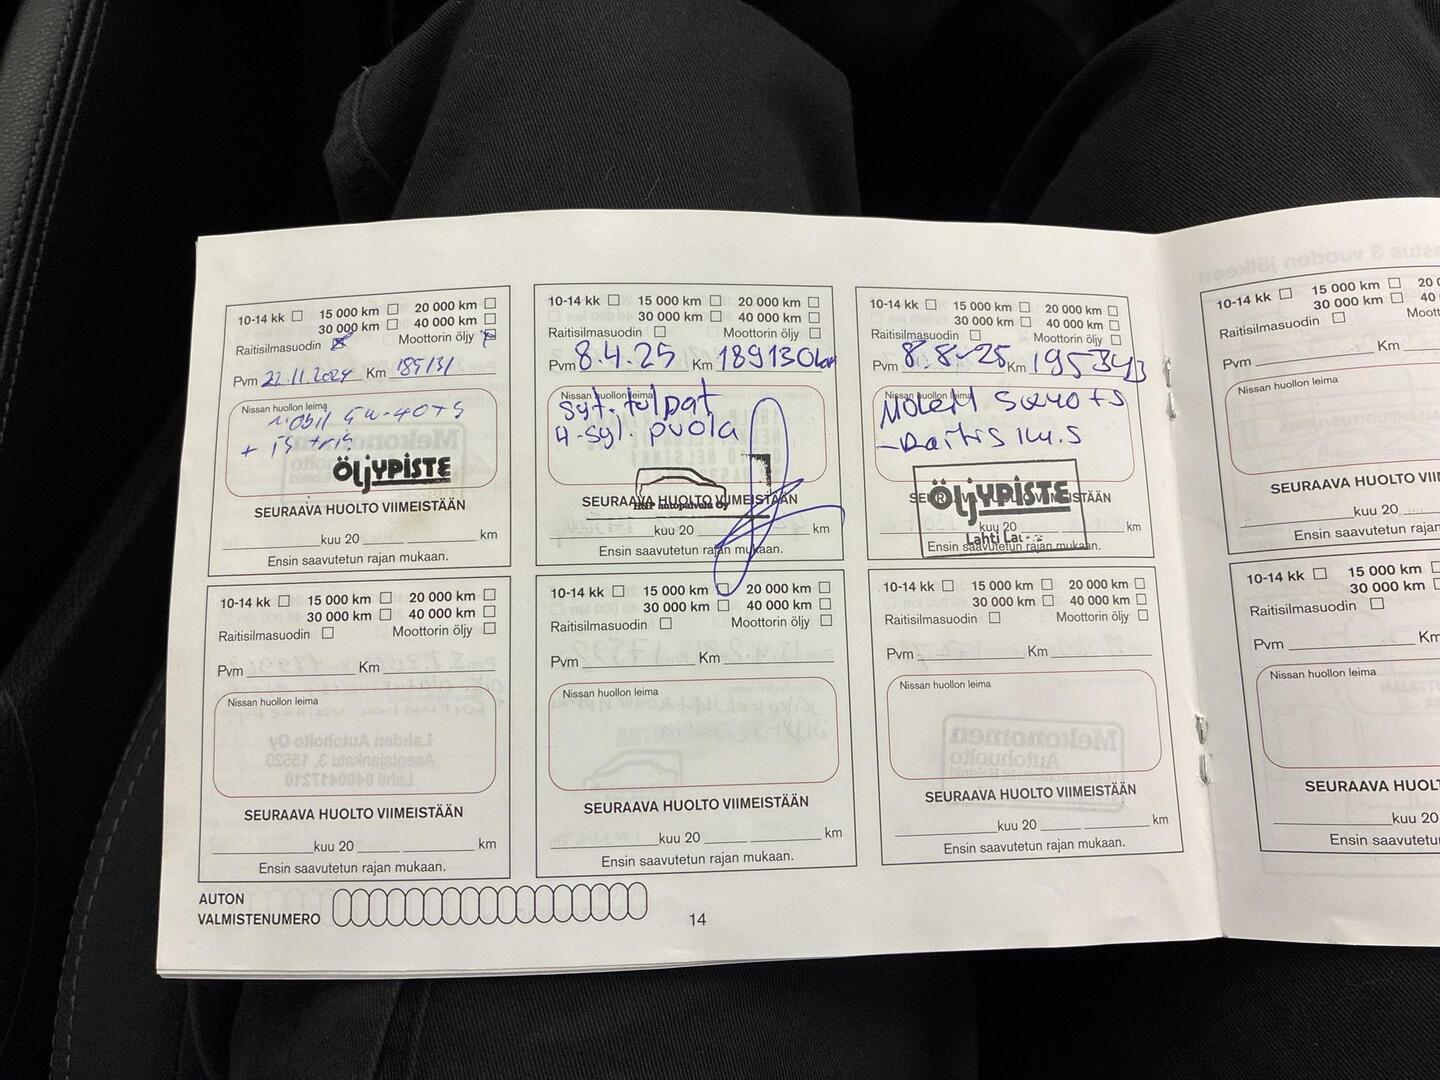 10-14 kk 15 000 km 20 000 km
30 000 km 40 000 km
Raitisilmasuodin Moottorin öljy
Pvm 22.11.2024 Km 185131
Nissan huollon leima
Mobil 5w-40+S
+ is
ÖLJYPISTE
SEURAAVA HUOLTO VIIMEISTÄÄN
kuu 20 km
Ensin saavutetun rajan mukaan.
10-14 kk 15 000 km 20 000 km
30 000 km 40 000 km
Raitisilmasuodin Moottorin öljy
Pvm 8.4.25 Km 189130km
Nissan huollon leima
syt. tulpat
4-syl. puola
SEURAAVA HUOLTO VIIMEISTÄÄN
autopalvelu Oy
kuu 20 km
Ensin saavutetun rajan mukaan.
10-14 kk 15 000 km 20 000 km
30 000 km 40 000 km
Raitisilmasuodin Moottorin öljy
Pvm 8.8.25 Km
Nissan huollon leima
5w40+S
-Raitis ilm.s
ÖLJYPISTE
SEURAAVA HUOLTO VIIMEISTÄÄN
kuu 20 km
Lahti
Ensin saavutetun rajan mukaan.
10-14 kk 15 000 km 20 000 km
30 000 km 40 000 km
Raitisilmasuodin Moottorin öljy
Pvm Km
Nissan huollon leima
SEURAAVA HUOLTO VIIMEISTÄÄN
kuu 20 km
Ensin saavutetun rajan mukaan.
10-14 kk 15 000 km 20 000 km
30 000 km 40 000 km
Raitisilmasuodin Moottorin öljy
Pvm Km
Nissan huollon leima
SEURAAVA HUOLTO VIIMEISTÄÄN
kuu 20 km
Ensin saavutetun rajan mukaan.
10-14 kk 15 000 km 20 000 km
30 000 km 40 000 km
Raitisilmasuodin Moottorin öljy
Pvm Km
Nissan huollon leima
SEURAAVA HUOLTO VIIMEISTÄÄN
kuu 20 km
Ensin saavutetun rajan mukaan.
AUTON
VALMISTENUMERO
14
10-14 kk 15 000 km 20 0
30 000 km 40
Raitisilmasuodin Moott
Pvm Km
Nissan huollon leima
SEURAAVA HUOLTO VIIM
kuu 20
Ensin saavutetun rajan m
10-14 kk 15 000 km
30 000 km
Raitisilmasuodin
Pvm Km
Nissan huollon leima
SEURAAVA HUOLT
kuu 20
Ensin saavutetun